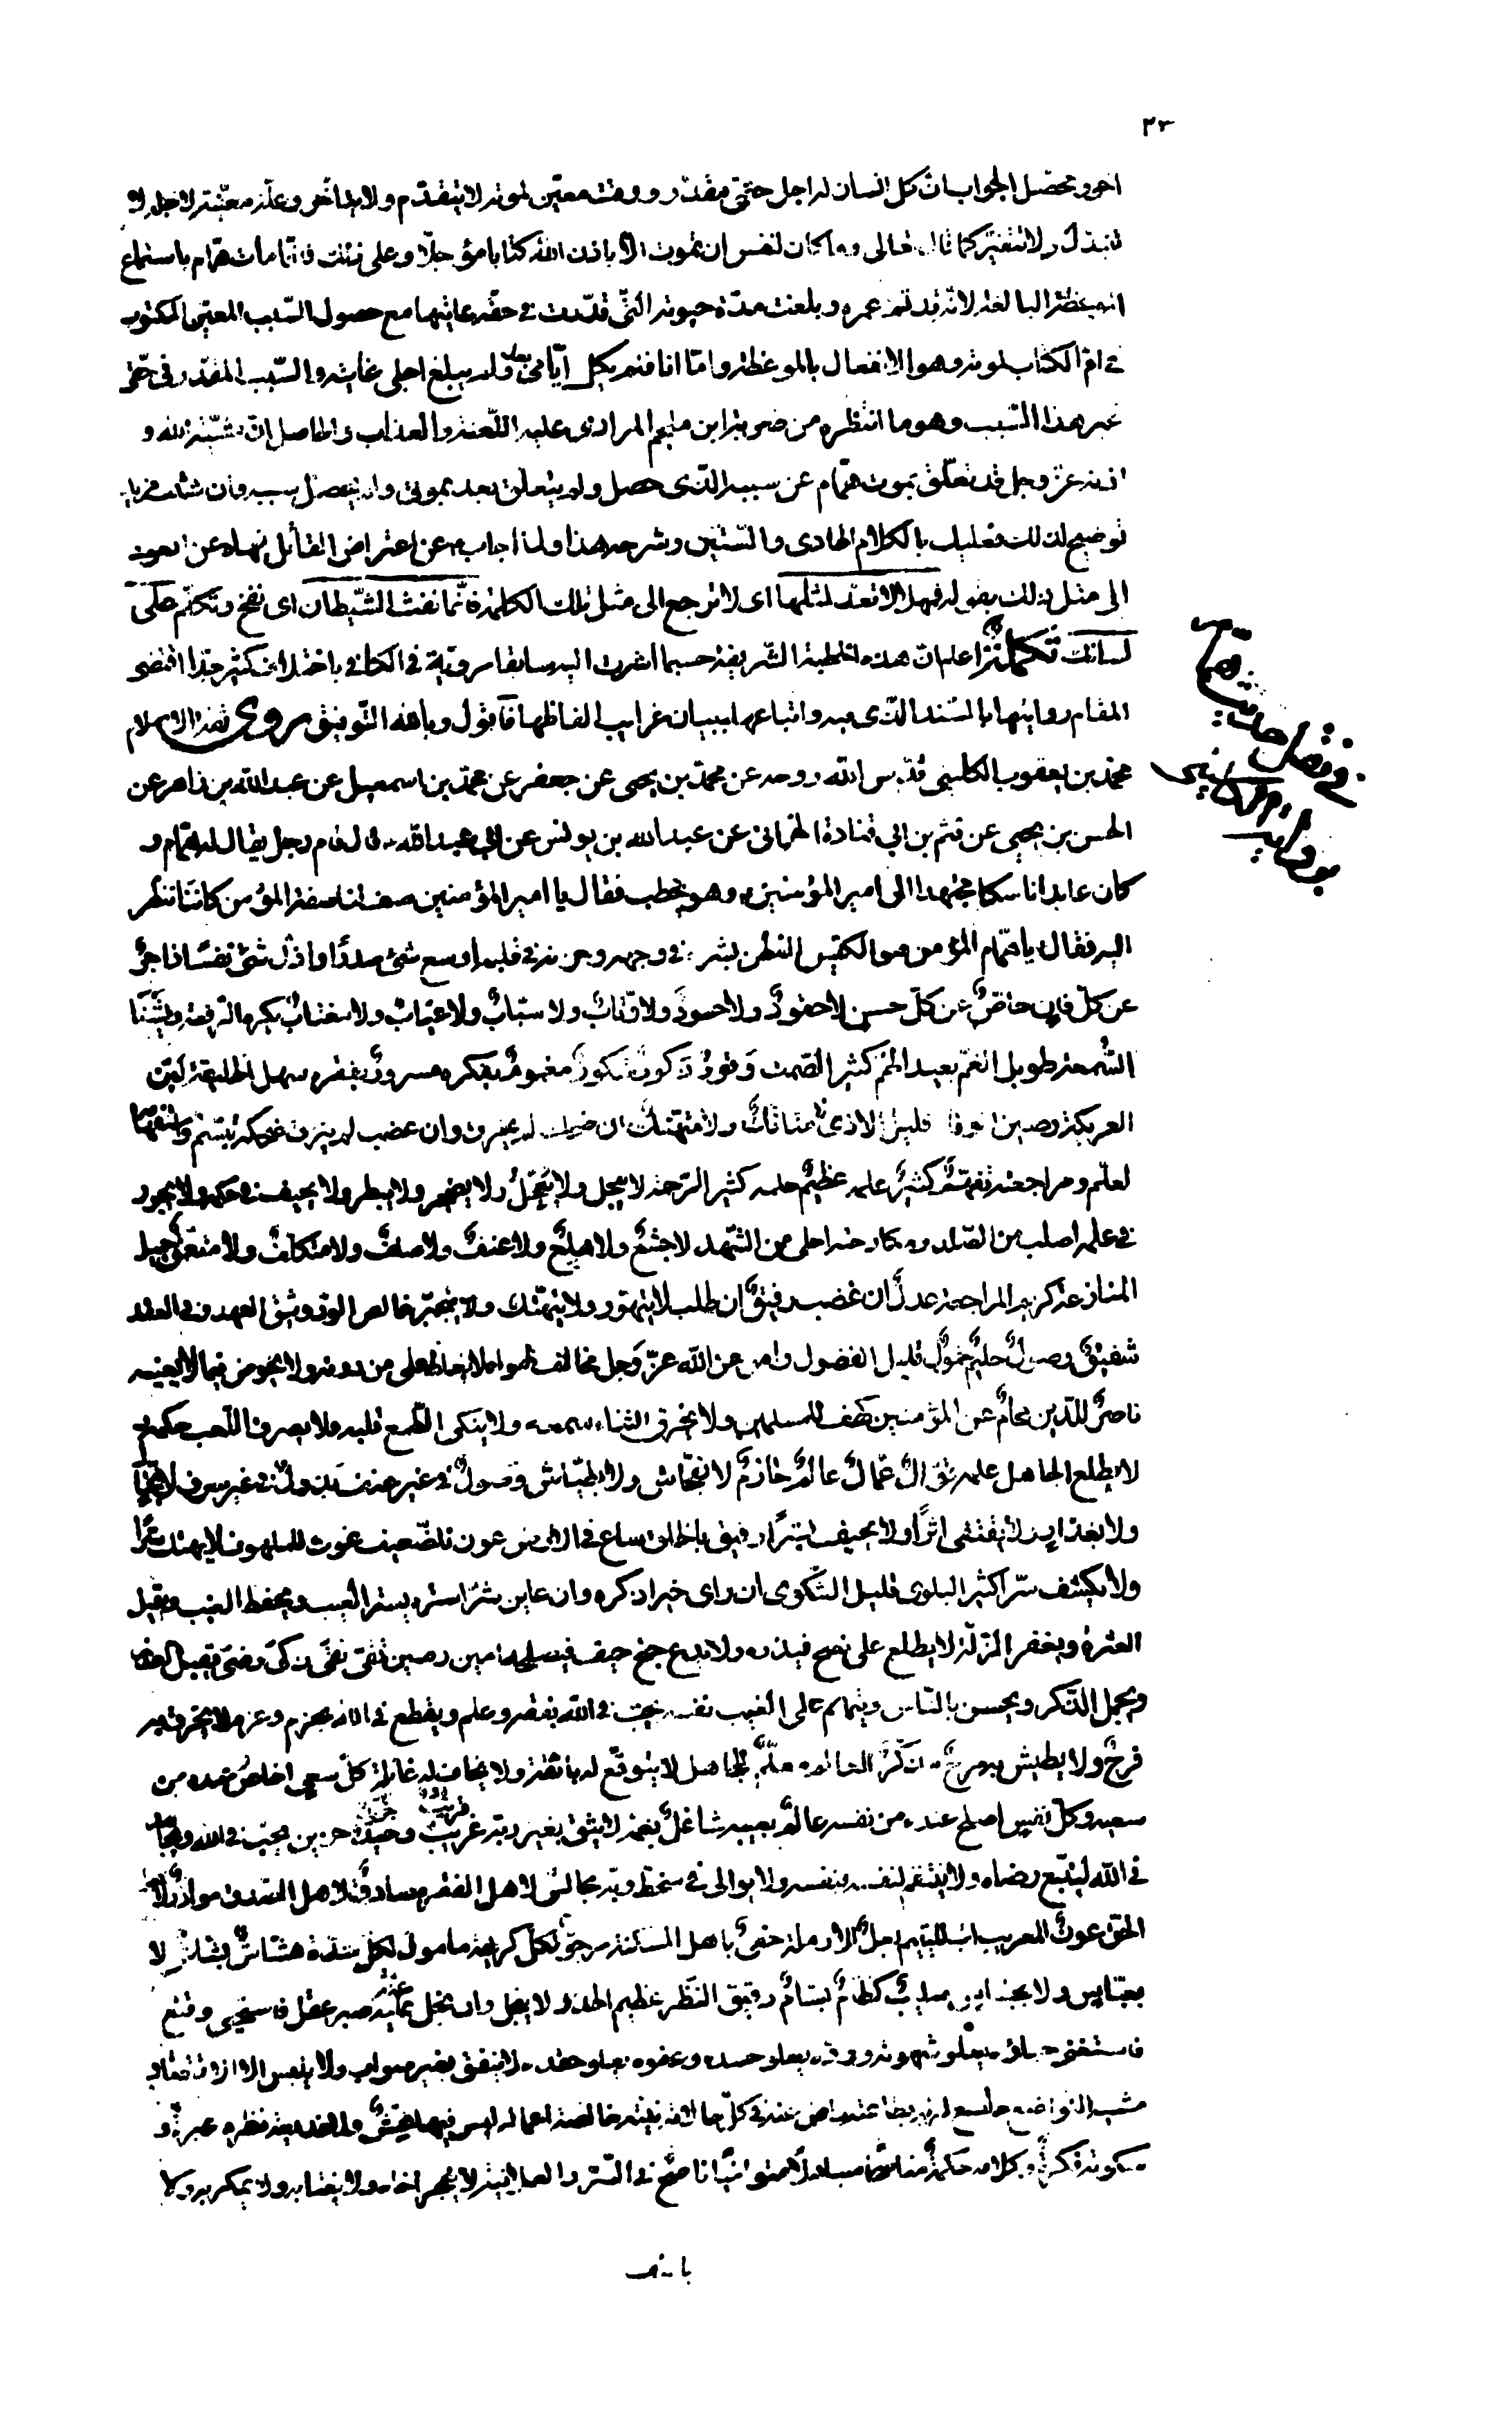 ٢٣
اخر ومحصّل الجواب انّ كلّ انسان له اجل حتمىّ مقدّر ووقت معيّن لموته لا يتقدّم ولا يتأخّر وعلّة معيّنة لاجله لا
تتبدّل ولا تتغيّر كما قال تعالى وما كان لنفس ان تموت الّا باذن اللّه كتابا مؤجّلا وعلى ذلك فانّما مات همّام باستماع
الموعظة البالغة لانّه قد تمّ عمره وبلغت مدّة حيوته الّتى قدّرت فى حقّه غايتها مع حصول السّبب المعيّن المكتوب
فى امّ الكتاب لموته وهو الانفعال بالموعظة وامّا انا فلم يكمل ايّامى بعد ولم يبلغ اجلى غايته والسّبب المقدّر فى حقّى
غير هذا السّبب وهو ما انتظره من ضربة ابن ملجم المرادى عليه اللّعنة والعذاب والحاصل انّ مشيّة اللّه و
اذنه عزّ وجلّ قد تعلّق بموت همّام عن سببه الّذى حصل ولم يتعلّق بعد بموتى ولم يتحصّل سببه وان شئت مزيد
توضيح لذلك فعليك بالكلام الحادى والستّين وشرحه هذا ولمّا اجاب عن اعتراض القائل نهاه عن العود
الى مثل ذلك بقوله فمهلا لا تعد لمثلها اى لا ترجع الى مثل تلك الكلمة فانّما نفث الشّيطان اى نفخ وتكلّم على
لسانك تكملة اعلم انّ هذه الخطبة الشّريفة حسبما اشرت اليه سابقا مرويّة فى الكافى باختلاف كثير جدّا اقتضى
المقام روايتها بالسّند الّذى فيه واتباعها ببيان غرايب الفاظها فاقول وباللّه التّوفيق روى ثقة الاسلام
محمّد بن يعقوب الكلينى قدّس اللّه روحه عن محمّد بن يحيى عن جعفر عن محمّد بن اسمعيل عن عبد اللّه بن ذاهر عن
الحسن بن يحيى عن قثم بن ابى قتادة الحرّانى عن عبد اللّه بن يونس عن ابى عبد اللّه قال قام رجل يقال له همّام و
كان عابدا ناسكا مجتهدا الى امير المؤمنين وهو يخطب فقال يا امير المؤمنين صف لنا صفة المؤمن كانّنا ننظر
اليه فقال يا همّام المؤمن هو الكيّس الفطن بشره فى وجهه وحزنه فى قلبه اوسع شىء صدرًا واذلّ شىء نفسًا زاجرٌ
عن كلّ فان حاضٌّ عن كلّ حسن لا حقودٌ ولا حسودٌ ولا وثّابٌ ولا سبّابٌ ولا عيّابٌ ولا مغتابٌ يكره الرّفعة ويشنأ
السُّمعة طويل الغمّ بعيد الهمّ كثير الصّمت وقورٌ ذكورٌ شكورٌ مغمومٌ بفكره مسرورٌ بفقره سهل الخليقة ليّن
العريكة رصين الوفا قليل الاذى لا متافّكٌ ولا متهتّكٌ ان ضحك لم يخرق وان غضب لم ينزق ضحكه تبسّم واستفهامه
تعلّم ومراجعته تفهّمٌ كثيرٌ علمه عظيمٌ حلمه كثير الرّحمة لا يبخل ولا يعجل ولا يضجر ولا يبطر ولا يحيف فى حكمه ولا يجور
فى علمه نفسه اصلب من الصّلد ومكادحته احلى من الشّهد لا جشعٌ ولا هلعٌ ولا عنفٌ ولا صلفٌ ولا متكلّفٌ ولا متعمّقٌ جميل
المنازعة كريم المراجعة عدلٌ ان غضب رفيقٌ ان طلب لا يتهوّر ولا يتهتّك ولا يتجبّر خالص الودّ وثيق العهد وفىّ العقد
شفيقٌ وصولٌ حليمٌ خمولٌ قليل الفضول راض عن اللّه عزّ وجلّ مخالف لهواه لا يغلظ على من دونه ولا يخوض فيما لا يعنيه
ناصرٌ للدّين محامٌ عن المؤمنين كهف للمسلمين ولا يخرق الثناء سمعه ولا ينكى الطّمع قلبه ولا يصرف اللّعب حكمه
لا يطلع الجاهل علمه قوّالٌ عمّالٌ عالمٌ حازمٌ لا بفحّاش ولا بطيّاش وصولٌ فى غير عنف بذولٌ فى غير سرف لا بختّال
ولا بغدّار لا يقتفى اثرًا ولا يحيف بشرًا رفيق بالخلق ساع فى الارض عون للضّعيف غوث للملهوف لا يهتك سترًا
ولا يكشف سرّا كثير البلوى قليل الشّكوى ان راى خيرا ذكره وان عاين شرّا ستره يستر العيب ويحفظ الغيب ويقيل
العثرة ويغفر الزلّة لا يطلع على نصح فيذره ولا يدع جنح حيف فيصلحه امين رصين تقىّ نقىّ زكىّ رضىّ يقبل العذر
ويجمل الذّكر ويحسن بالنّاس ويتّهم على الغيب نفسه يحبّ فى اللّه بفقه وعلم ويقطع فى اللّه بحزم وعزم لا يخرق به
فرحٌ ولا يطيش به مرحٌ مذكّرٌ للعالم معلّمٌ للجاهل لا يتوقّع له بائقة ولا يخاف له غائلة كلّ سعى اخلص عنده من
سعيه وكلّ نفس اصلح عنده من نفسه عالمٌ بعيبه شاغلٌ بغمّه لا يثق بغير ربّه غريبٌ وحيدٌ حزين يحبّ فى اللّه ويجاهد
فى اللّه ليتّبع رضاه ولا ينتقم لنفسه بنفسه ولا يوالى فى سخط ربّه مجالسٌ لاهل الفقر مصادقٌ لاهل الصّدق موازرٌ لاهل
الحقّ عونٌ للغريب ابٌ لليتيم بعلٌ للارملة حفىٌّ باهل المسكنة مرجوٌّ لكلّ كريهة مامولٌ لكلّ شدّة هشّاشٌ بشّاشٌ لا
بعبّاس ولا بجسّاس صليبٌ كظّامٌ بسّامٌ دقيق النظر عظيم الحذر لا يبخل وان بخل عليه صبر عقل فاستحيى وقنع
فاستغنى حياؤه يعلو شهوته وودّه يعلو حسده وعفوه يعلو حقده لا ينطق بغير صواب ولا يلبس الّا الاقتصاد
مشيه التّواضع خاضع لربّه بطاعته راض عنه فى كلّ حالاته نيّته خالصة اعماله ليس فيها غشٌّ ولا خديعة نظره عبرةٌ و
سكوته فكرةٌ وكلامه حكمةٌ مناصحًا متبادلًا متواخيًا ناصحٌ فى السّرّ والعلانية لا يهجر اخاه ولا يغتابه ولا يمكر به ولا